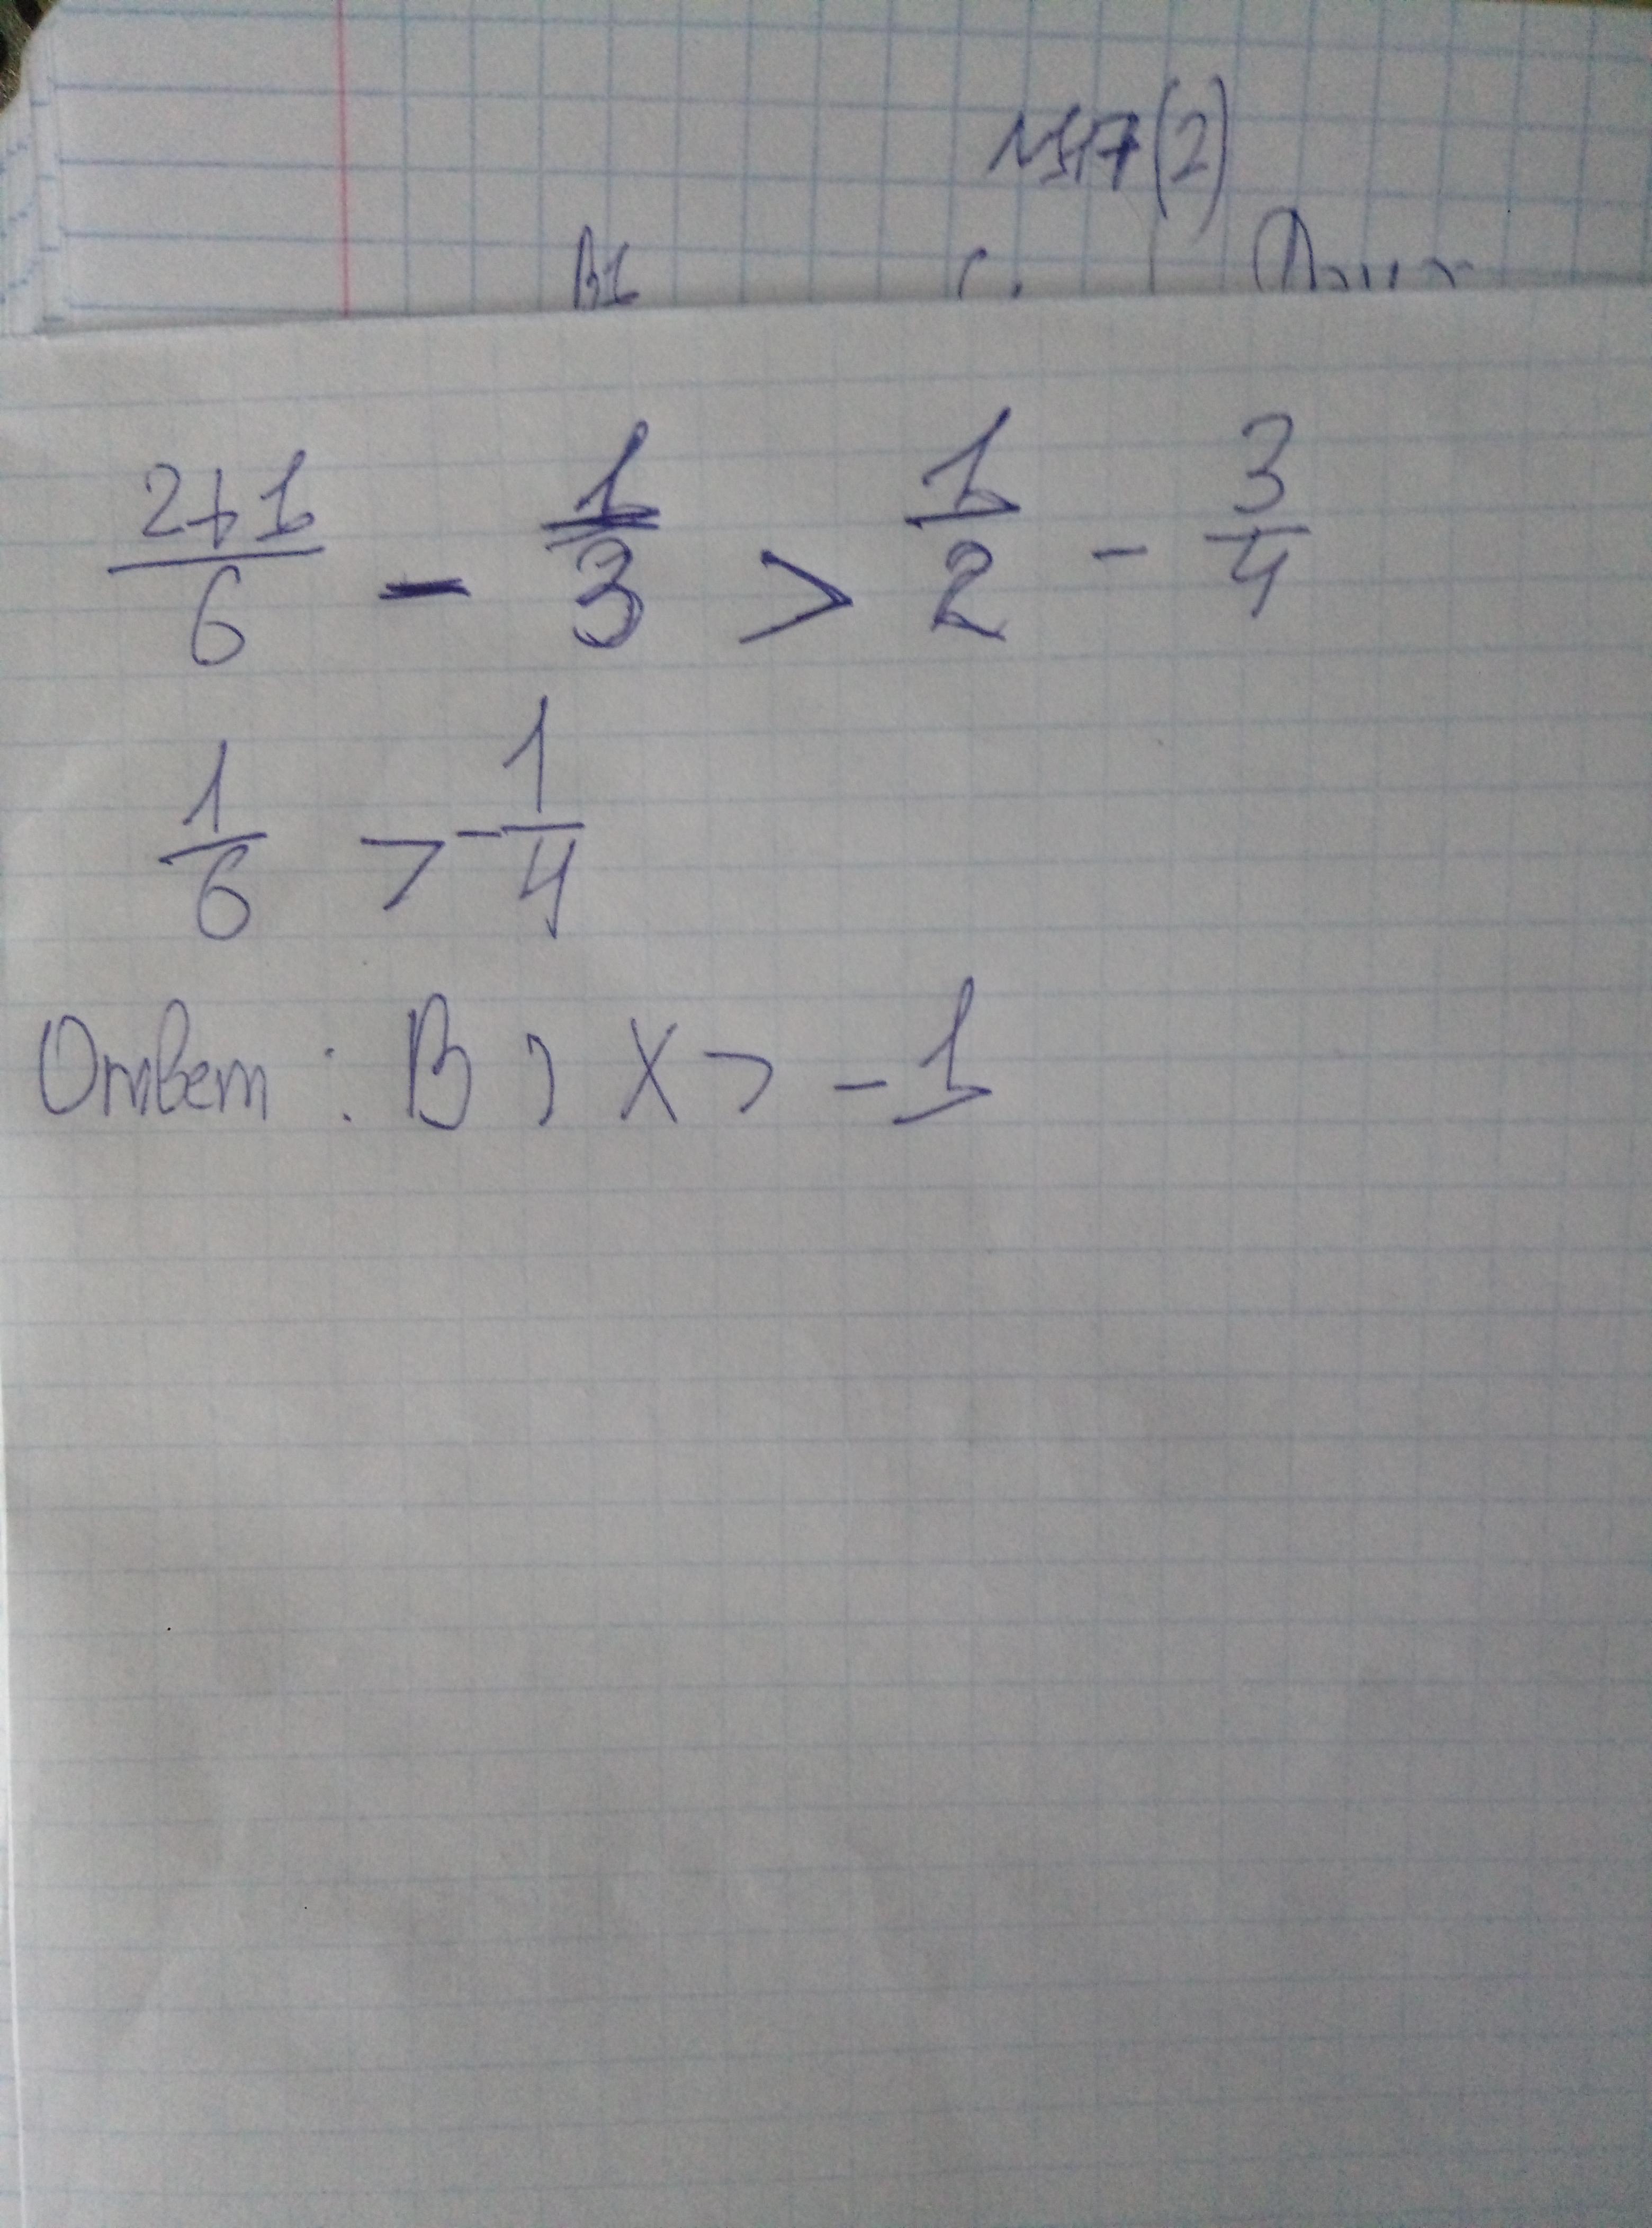 №17(2)
B1
2+1/6 - 1/3 > 1/2 - 3/4
1/6 > -1/4
Ответ: В) x > -1